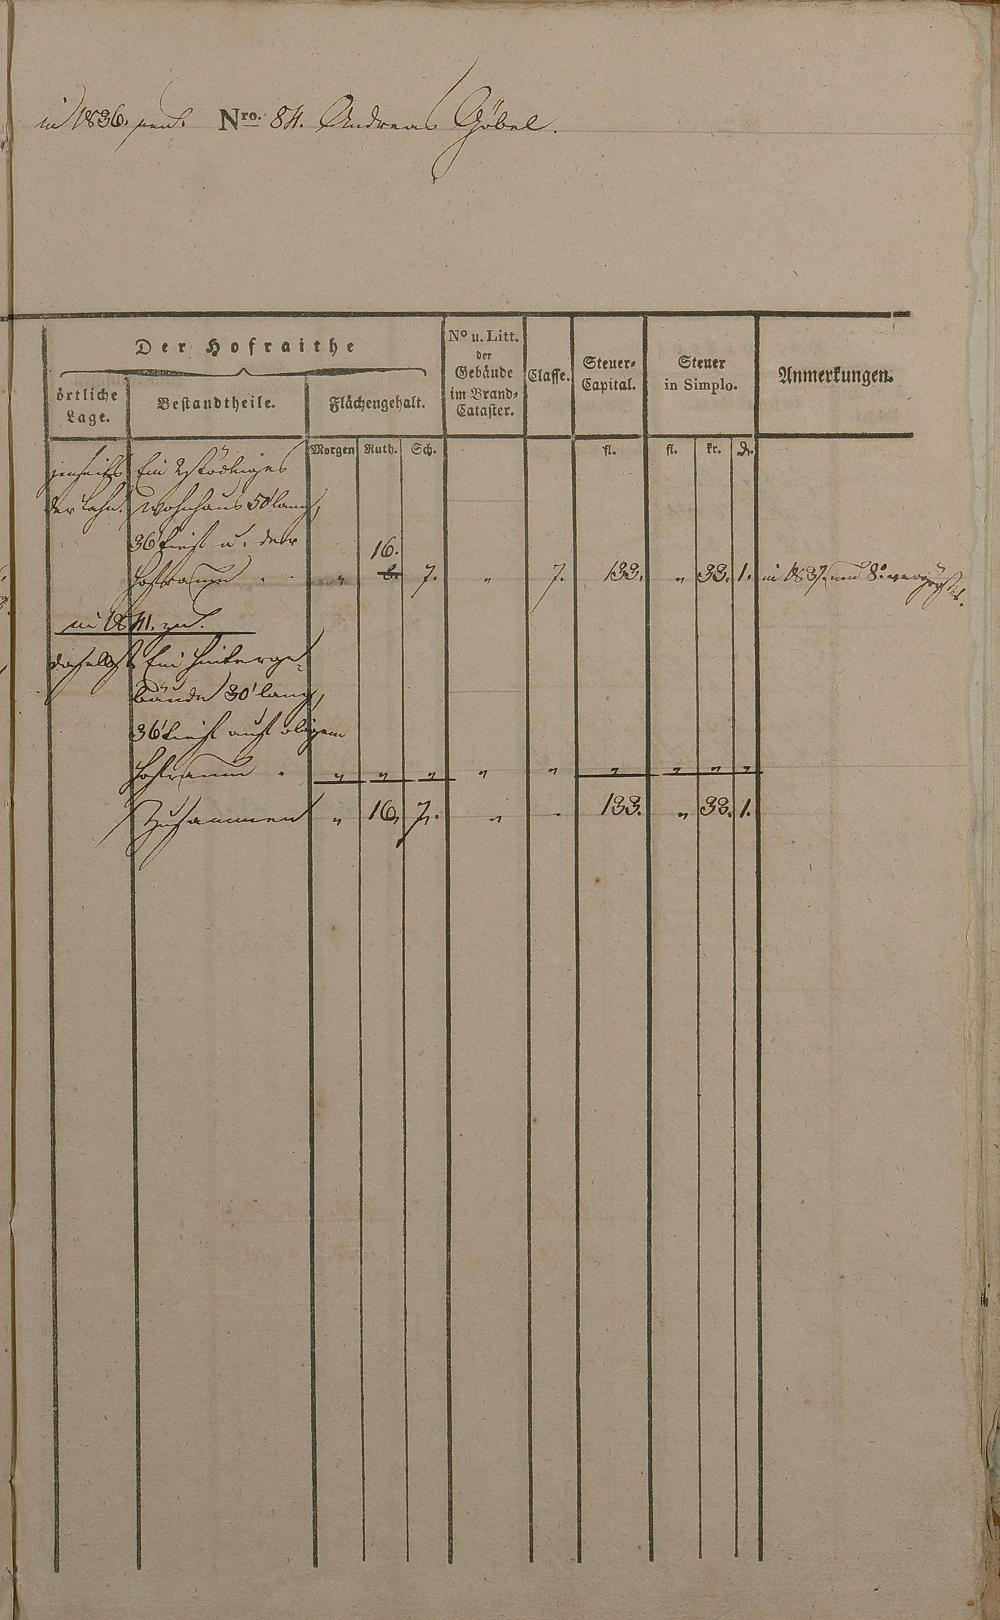 in 1836. neu. Nro. 84. Andreas Göbel.
Der Hofraithe
örtliche Lage.
Bestandtheile.
Flächengehalt.
No u. Litt. der Gebäude im Brand-Cataster.
Classe.
Steuer-Capital.
Steuer in Simplo.
Anmerkungen.
Morgen Ruth. Sch. fl. fl. kr. d.
jenseits Ein 2stöckiges
der Lahn. Wohnhaus 50' lang,
36' tief u. der
16.
Hofraum " 8. 7. " 7. 133. " 33. 1. in 1837. um 8° vergrößert.
in 1841. zu.
daselbst Ein Hinterge-
bäude 30' lang,
36' tief auf obigem
Hofraum " " " " " " " " "
Zusammen " 16, 7. " - 133. " 33. 1.